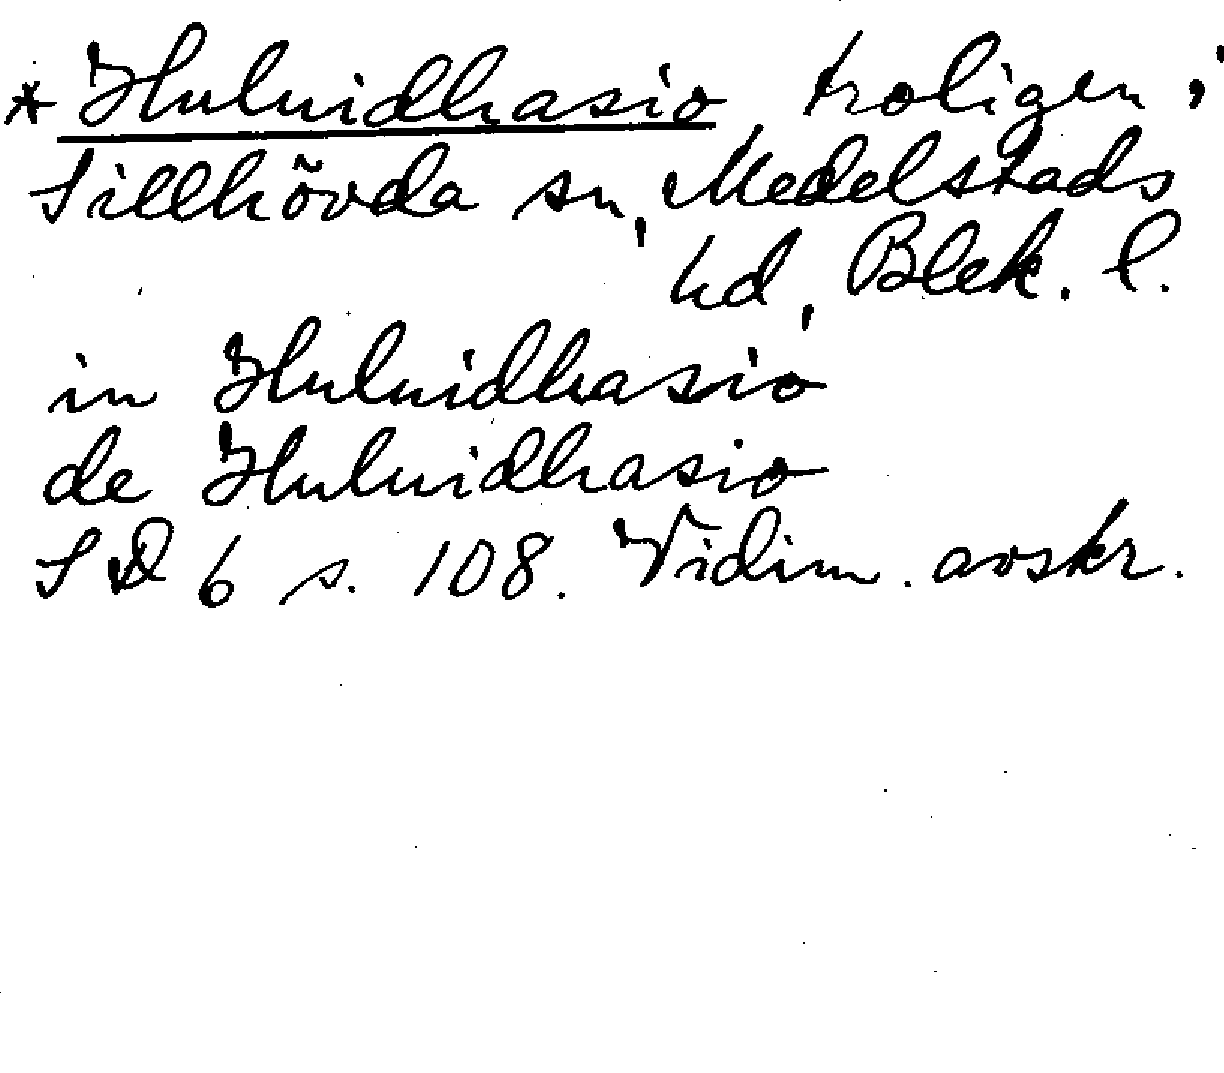 * Huluidhasio troligen i
Sillhövda sn, Medelstads
hd, Blek. l.
in Huluidhasio
de Huluidhasio
SD 6 s. 108. Vidim. avskr.